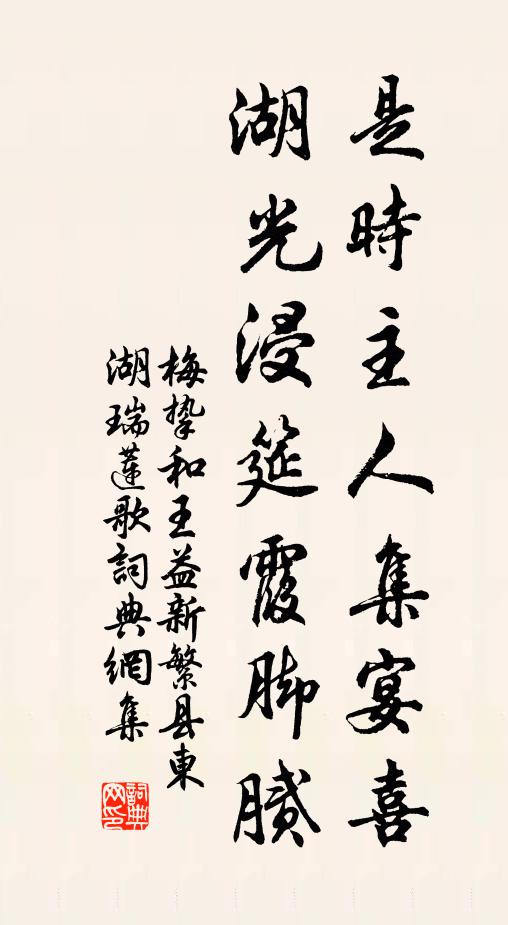 是時主人集宴喜
湖光浸筵霞脚膹
梅摯和王益新繁县東
湖瑞蓮歌詞典網集
詞典网印